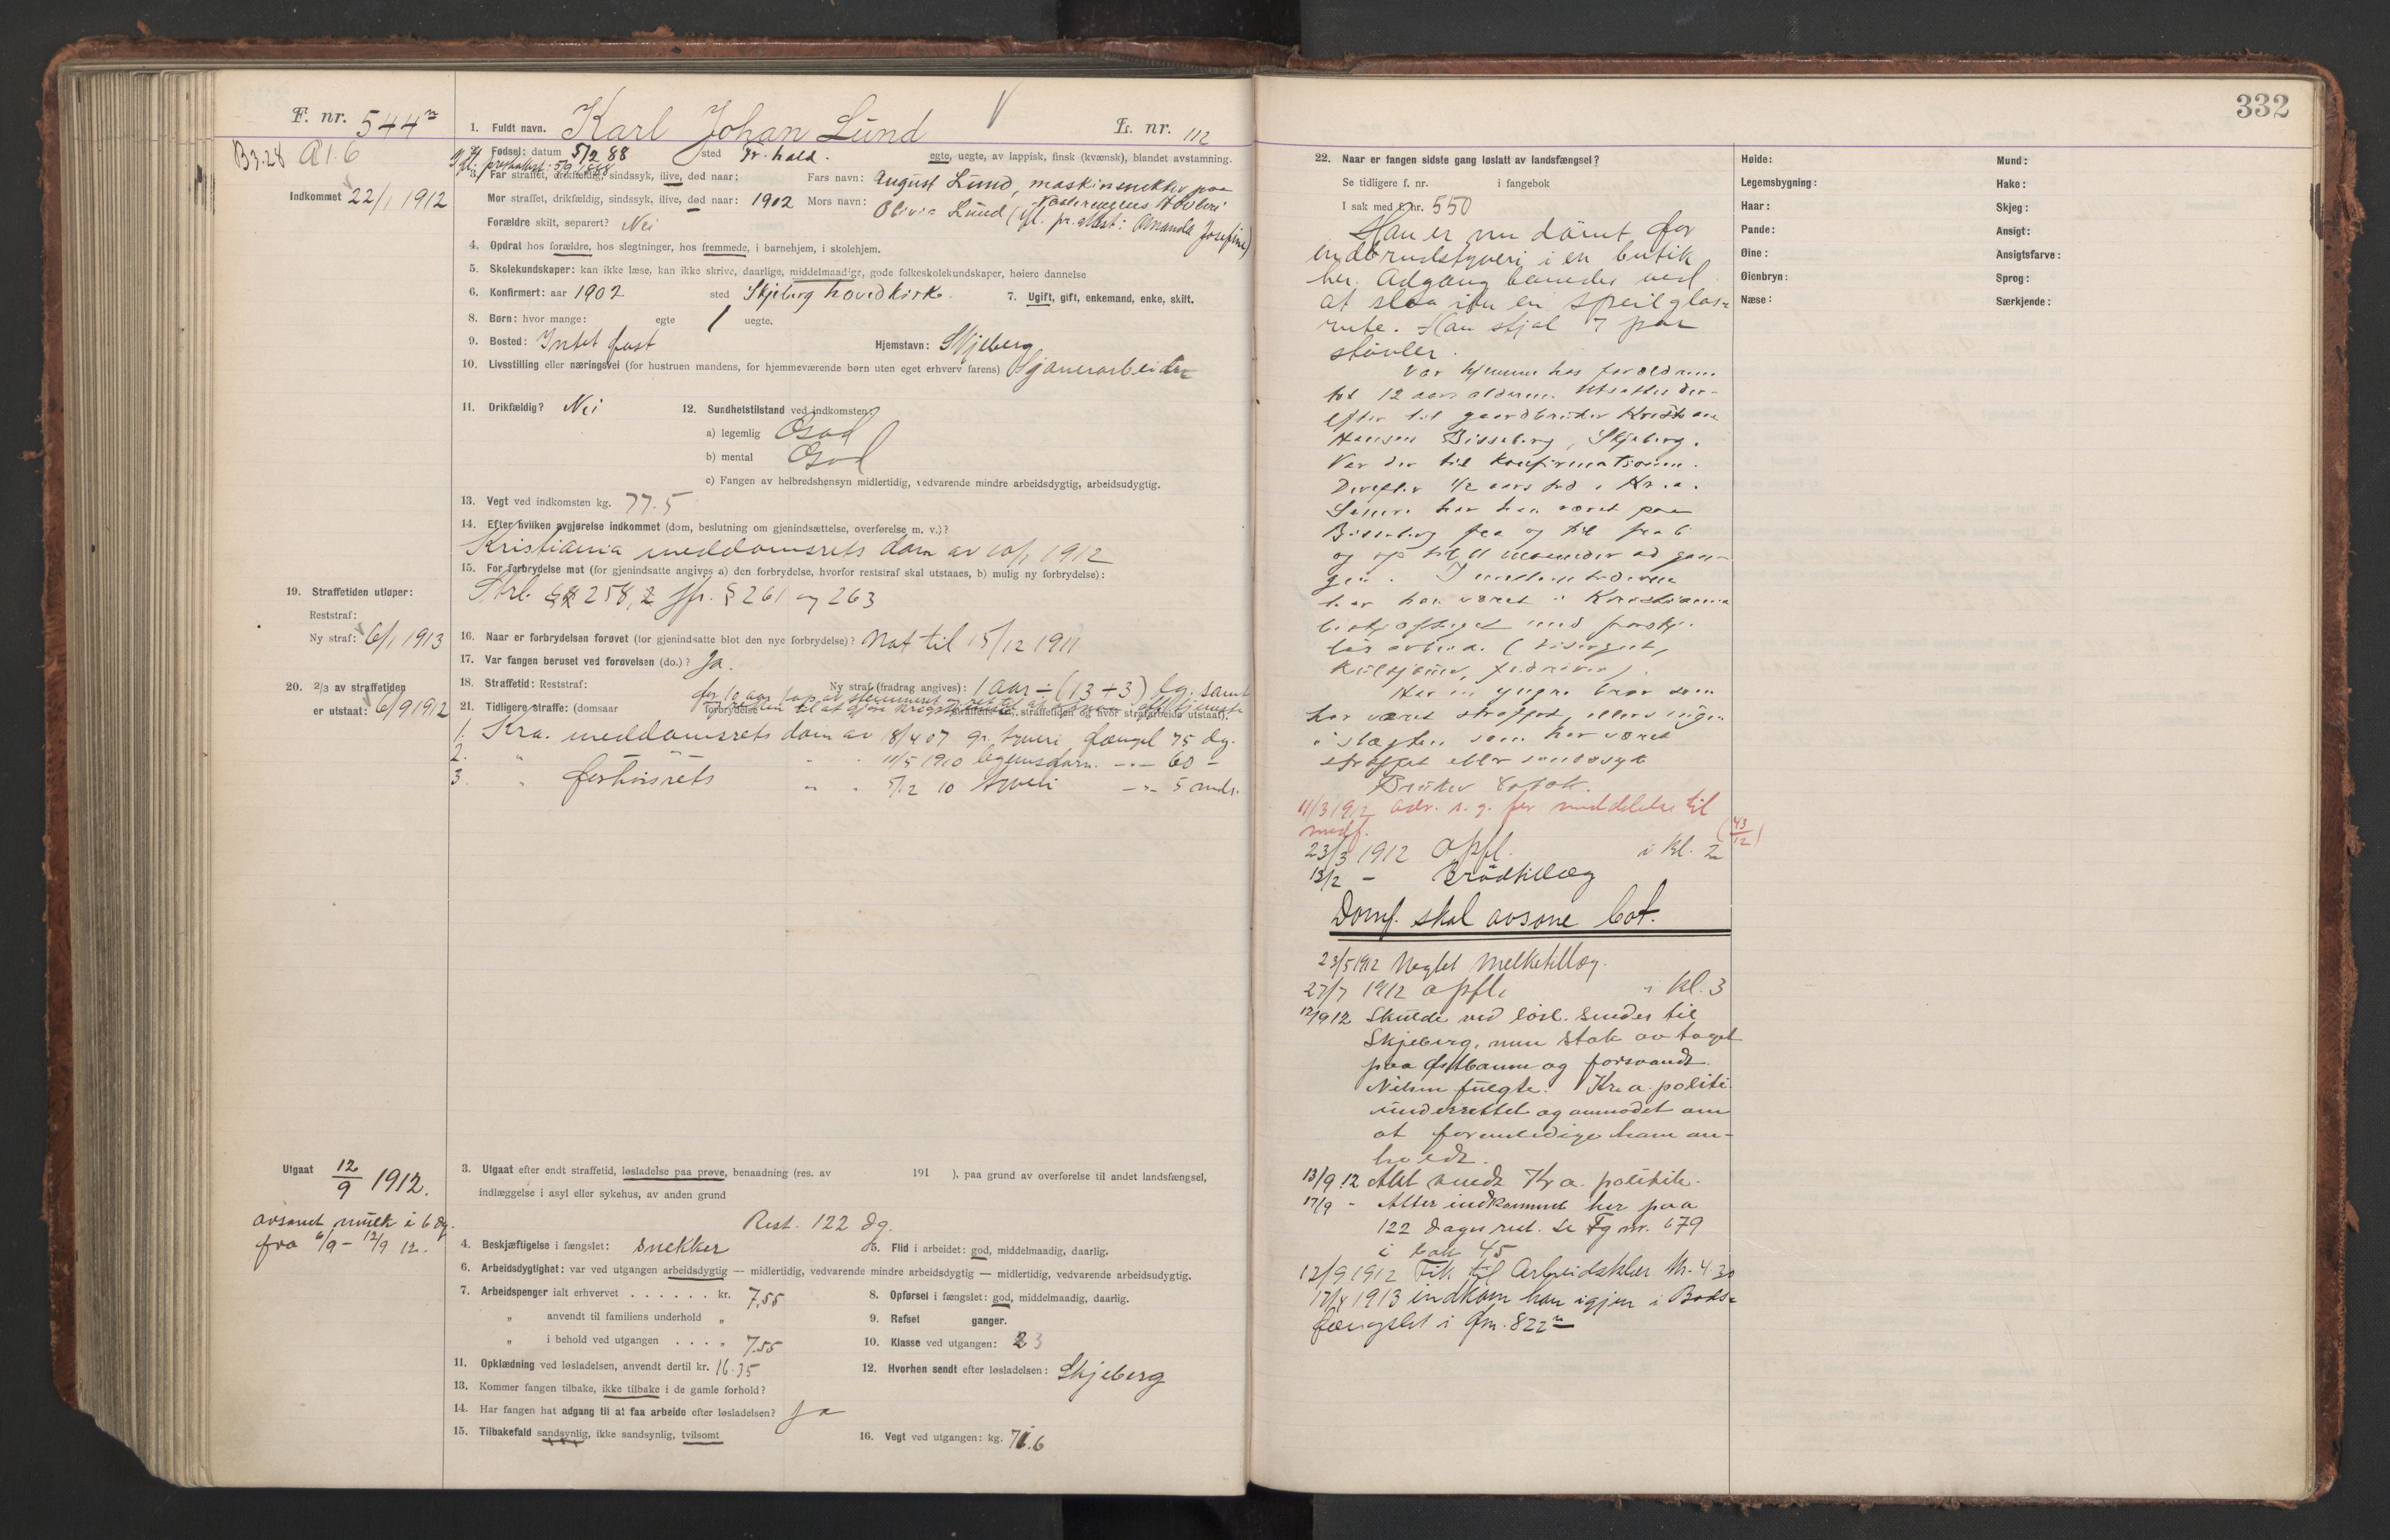 F. nr. 544
B3.28 A 1.6
Indkommet 22/1 1912
1. Fuldt navn. Karl Johan Lund
L. nr. 112
2. Fødsel: datum 5/2 88 sted Fr.hald. egte, uegte, av lappisk, finsk (kvænsk), blandet avstamning.
3. Far straffet, drikfældig, sindssyk, ilive, død naar: Fars navn: August Lund, maskinsnekker paa
Mor straffet, drikfældig, sindssyk, ilive, død naar: 1902 Mors navn: Olivia Lund (ifl. pr.attest: Amanda Josefine)
Forældre skilt, separert? Nei
4. Opdral hos forældre, hos slegtninger, hos fremmede, i barnehjem, i skolehjem.
5. Skolekundskaper: kan ikke læse, kan ikke skrive, daarlige, middelmaadige, gode folkeskolekundskaper, høiere dannelse
6. Konfirmert: aar 1902 sted Skjeberg hovedkirke. 7. Ugift, gift, enkemand, enke, skilt.
8. Børn: hvor mange: egte 1 uegte.
9. Bosted: Intet fast Hjemstavn: Skjeberg
10. Livsstilling eller næringsvei (for hustruen mandens, for hjemmeværende børn uten eget erhverv farens) Sjauerarbeider
11. Drikfældig? Nei 12. Sundhetstilstand ved indkomsten:
a) legemlig God
b) mental God
c) Fangen av helbredshensyn midlertidig, vedvarende mindre arbeidsdygtig, arbeidsudygtig.
13. Vegt ved indkomsten kg. 77.5
14. Efter hvilken avgjørelse indkommet (dom, beslutning om gjenindsættelse, overførelse m. v.)?
Kristiania meddomsrets dom av 10/1 1912
15. For forbrydelse mot (for gjenindsatte angives a) den forbrydelse, hvorfor reststraf skal utstaaes, b) mulig ny forbrydelse):
Strl. § 258, 2 jfr. § 261 og 263
19. Straffetiden utløper:
Reststraf:
Ny straf: 6/1 1913
16. Naar er forbrydelsen forøvet (for gjenindsatte blot den nye forbrydelse)? Nat til 15/12 1911
17. Var fangen beruset ved forøvelsen (do.)? Ja.
18. Straffetid: Reststraf: Ny straf (fradrag angives): 1 aar ÷ (13 + 3) dg. samt
20. 2/3 av straffetiden
er utstaat: 6/9 1912
21. Tidligere straffe: (domsaar forbrydelse straffetiden og hvor strafarbeide utstaat).
1. Kra. meddomsrets dom av 18/4 07 gr. tyveri fængsel 75 dg.
2. " " " 11/5 1910 legemsforn. -"- 60 -
3. " forhørsrets " " 5/12 10 tyveri -"- 5 mdr.
Utgaat 12/9 1912.
avsonet mulk i 6 dg.
fra 6/9 - 12/9 12.
3. Utgaat efter endt straffetid, løsladelse paa prøve, benaadning (res. av 191 ), paa grund av overførelse til andet landsfængsel,
indlæggelse i asyl eller sykehus, av anden grund
Rest. 122 dg.
4. Beskjæftigelse i fængslet: snekker 5. Flid i arbeidet: god, middelmaadig, daarlig.
6. Arbeidsdygtighet: var ved utgangen arbeidsdygtig — midlertidig, vedvarende mindre arbeidsdygtig — midlertidig, vedvarende arbeidsudygtig.
7. Arbeidspenger ialt erhvervet . . . . . . kr. 7.55 8. Opførsel i fængslet: god, middelmaadig, daarlig.
" anvendt til familiens underhold " 9. Refset ganger.
" i behold ved utgangen . . . . " 7.55 10. Klasse ved utgangen: 3
11. Opklædning ved løsladelsen, anvendt dertil kr. 16.35 12. Hvorhen sendt efter løsladelsen: Skjeberg
13. Kommer fangen tilbake, ikke tilbake i de gamle forhold?
14. Har fangen hat adgang til at faa arbeide efter løsladelsen? Ja
15. Tilbakefald sandsynlig, ikke sandsynlig, tvilsomt 16. Vegt ved utgangen: kg. 71.6
332
22. Naar er fangen sidste gang løslatt av landsfængsel?
Se tidligere f. nr. i fangebok
I sak med f. nr. 550
Han er nu dømt for
indbrudstyveri i en butik
her. Adgang banedes ved
at slaa ind en speilglas-
rute. Han stjal 7 par
støvler.
Var hjemme hos forældrene
til 12 aars alderen. Utsattes der-
efter til gaardbruker Kristian
Hansen Bisseberg, Skjeberg.
Var der til konfirmationen.
Derefter 1/2 aars tid i Kr.a.
Senere har han været paa
Bisseberg fra og til fra 6
og op til 11 maaneder ad gan-
gen. I mellemtiderne
har han været i Kristiania
beskjæftiget med forskj.
løs arbeide (
Har en yngre bror som
har været straffet, ellers ingen
i slægten som har været
straffet eller sindssyk
Bruker tobak.
11/3 1912 adv. s. g. for meddelelse til
medf. (43/12)
23/3 1912 Opfl. i kl. 2
13/2 - Brødtillæg
Domf. skal avsone bot.
23/5 1912 Negtet melketillæg.
27/7 1912 opfl. i kl. 3
12/9 12 Skulde ved løsl. sendes til
Skjeberg, men stak av toget
paa Østbanen og forsvandt.
Nilsen fulgte. Kr.a. politi
underrettet og anmodet om
at foranledige ham an-
holdt.
13/9 12 Akt sendt Kr.a. politik.
17/9 - Atter indkommet her paa
122 dages rest. Se Fg nr. 679
i bok 45
12/9 1912 Fik til Arbeidsklær Kr. 4.30
17/4 1913 indkom han igjen i Bods-
fængslet i fnr. 822
Høide:
Legemsbygning:
Haar:
Pande:
Øine:
Øienbryn:
Næse:
Mund:
Hake:
Skjeg:
Ansigt:
Ansigtsfarve:
Sprog:
Særkjende: